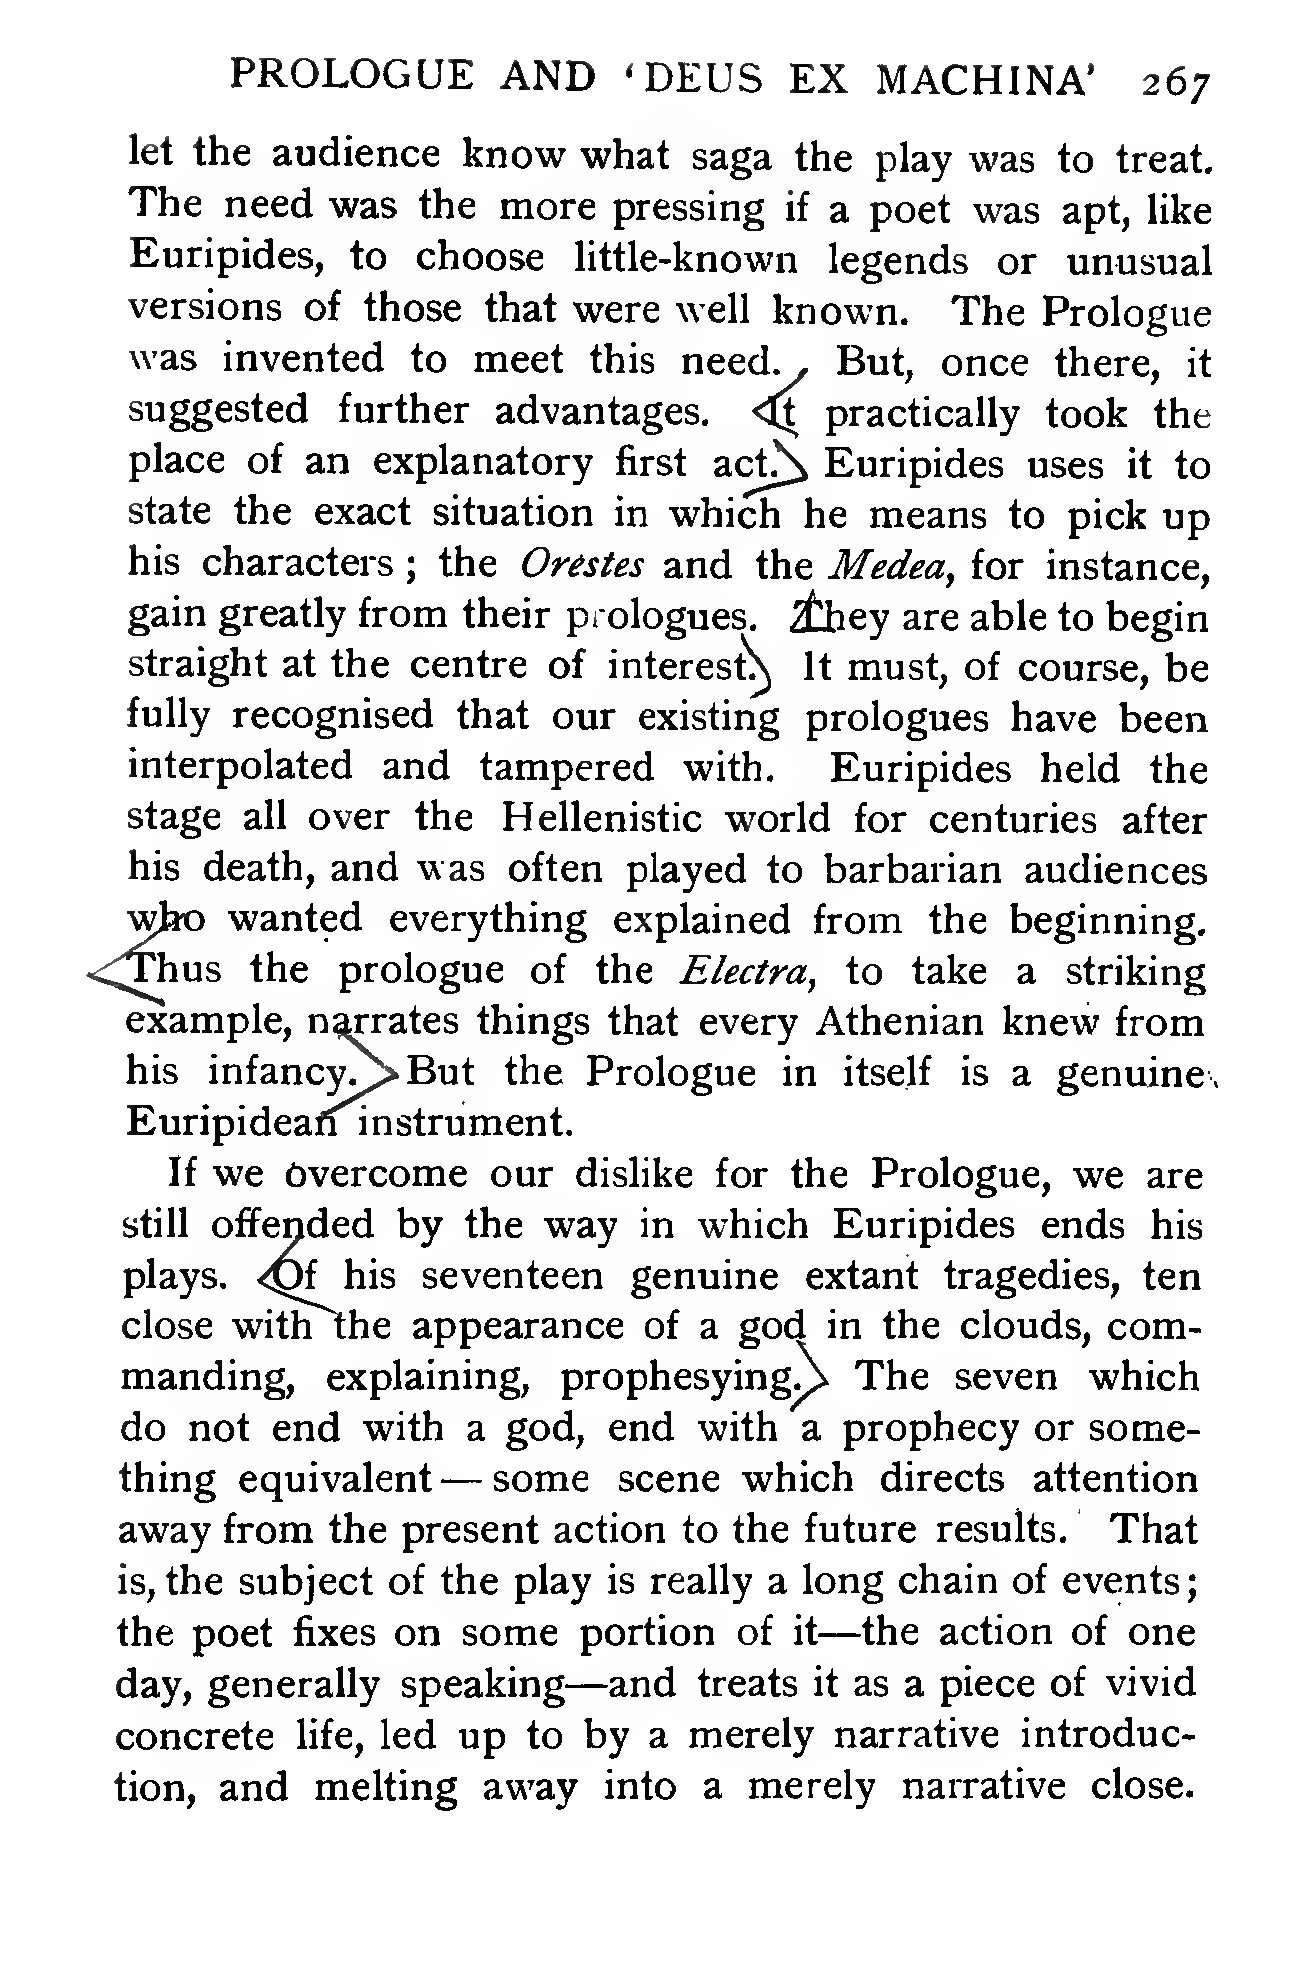 PROLOGUE AND ‘DEUS EX MACHINA’ 267
let the audience know what saga the play was to treat.
The need was the more pressing if a poet was apt, like
Euripides, to choose little-known legends or unusual
versions of those that were well known. The Prologue
was invented to meet this need. But, once there, it
suggested further advantages. It practically took the
place of an explanatory first act. Euripides uses it to
state the exact situation in which he means to pick up
his characters ; the Orestes and the Medea, for instance,
gain greatly from their prologues. They are able to begin
straight at the centre of interest. It must, of course, be
fully recognised that our existing prologues have been
interpolated and tampered with. Euripides held the
stage all over the Hellenistic world for centuries after
his death, and was often played to barbarian audiences
who wanted everything explained from the beginning.
Thus the prologue of the Electra, to take a striking
example, narrates things that every Athenian knew from
his infancy. But the Prologue in itself is a genuine
Euripidean instrument.
If we overcome our dislike for the Prologue, we are
still offended by the way in which Euripides ends his
plays. Of his seventeen genuine extant tragedies, ten
close with the appearance of a god in the clouds, com-
manding, explaining, prophesying. The seven which
do not end with a god, end with a prophecy or some-
thing equivalent — some scene which directs attention
away from the present action to the future results. That
is, the subject of the play is really a long chain of events;
the poet fixes on some portion of it—the action of one
day, generally speaking—and treats it as a piece of vivid
concrete life, led up to by a merely narrative introduc-
tion, and melting away into a merely narrative close.